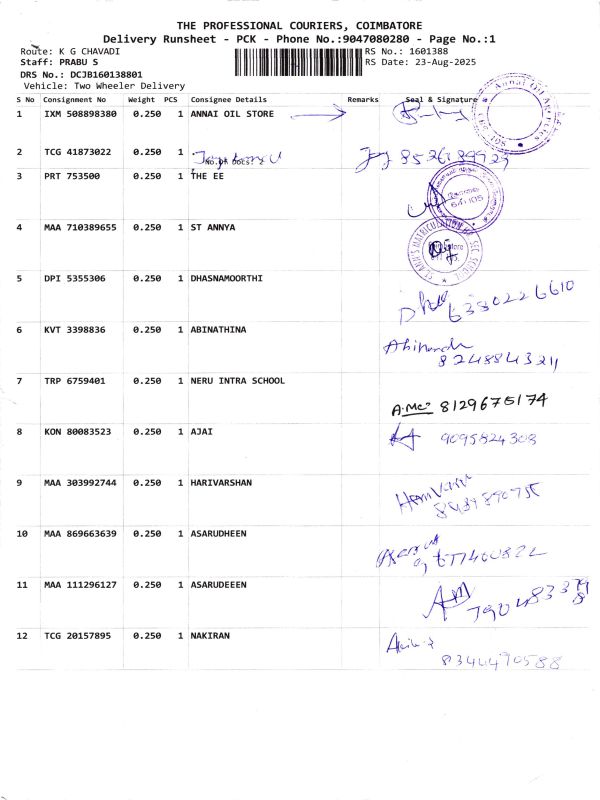 THE PROFESSIONAL COURIERS, COIMBATORE
Delivery Runsheet - PCK - Phone No.:9047080280 - Page No.:1
Route: K G CHAVADI RS No.: 1601388
Staff: PRABU S RS Date: 23-Aug-2025
DRS No.: DCJB160138801
Vehicle: Two Wheeler Delivery
S No Consignment No Weight PCS Consignee Details Remarks Seal & Signature
1 IXM 508898380 0.250 1 ANNAI OIL STORE
2 TCG 41873022 0.250 1
3 PRT 753500 0.250 1 THE EE
4 MAA 710389655 0.250 1 ST ANNYA
5 DPI 5355306 0.250 1 DHASNAMOORTHI
6380226610
6 KVT 3398836 0.250 1 ABINATHINA
8248843211
7 TRP 6759401 0.250 1 NERU INTRA SCHOOL
8129675174
8 KON 80083523 0.250 1 AJAI
9095824308
9 MAA 303992744 0.250 1 HARIVARSHAN
10 MAA 869663639 0.250 1 ASARUDHEEN
11 MAA 111296127 0.250 1 ASARUDEEEN
12 TCG 20157895 0.250 1 NAKIRAN
8344490588